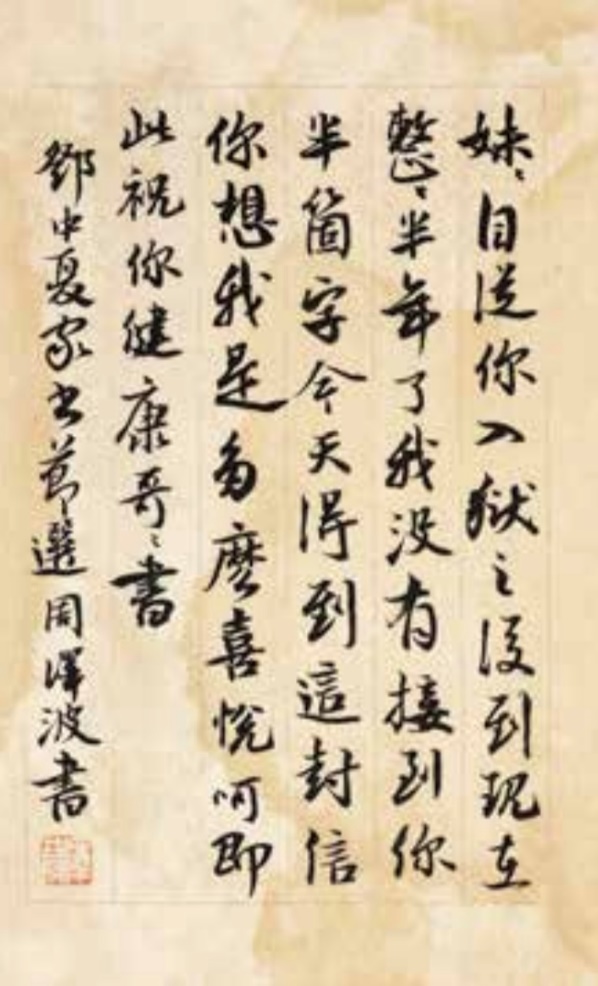 妹〻自從你入獄之後到現在
整〻半年了我没有接到你
半箇字今天得到這封信
你想我是多麽喜悅呵即
此祝你健康哥〻書
鄧中夏家書節選周澤波書